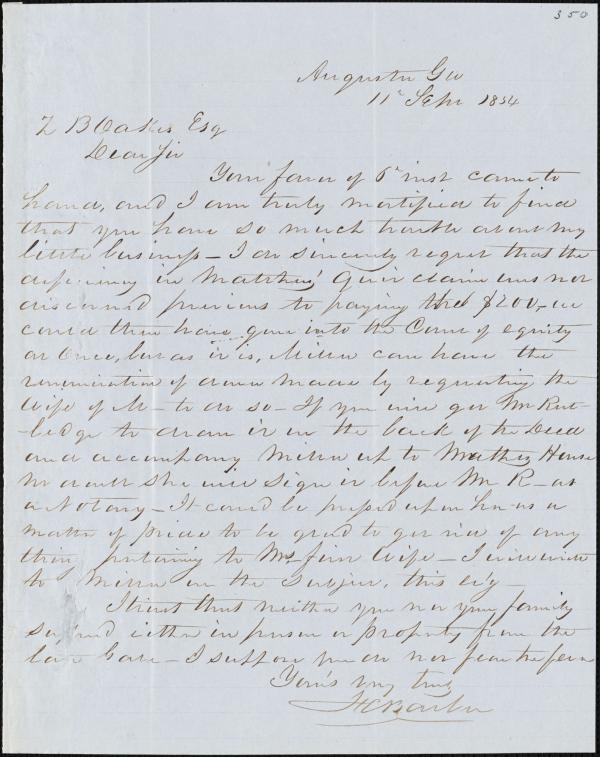 350
Augusta Ga
11th Sepr 1854
Z B Oakes Esq
Dear Sir
Your favor of 6th inst came to
hand, and I am truly mortified to find
that you have so much trouble about my
little business - I do sincerely regret that the
deficiency in Mathews' Quit claim was not
discovered previous to paying the $200, - we
could then have gone into the Court of equity
at Once, but as it is, Miller can have the
renunciation of dower made by requesting the
Wife of M - to do so - If you will get Mr Rut-
-ledge to draw it on the back of the Deed
and accompany Miller up to Mathews House
no doubt she will sign it before Mr R - as
a Notary - It could be pressed upon her as a
matter of pride to be glad to get rid of any
thing pertaining to Ms first Wife - I will write
to Miller on the Subject, this day -
I trust that neither you nor your family
suffered either in person or property from the
late Gale - I suppose you do not fear the fever
Your's very truly